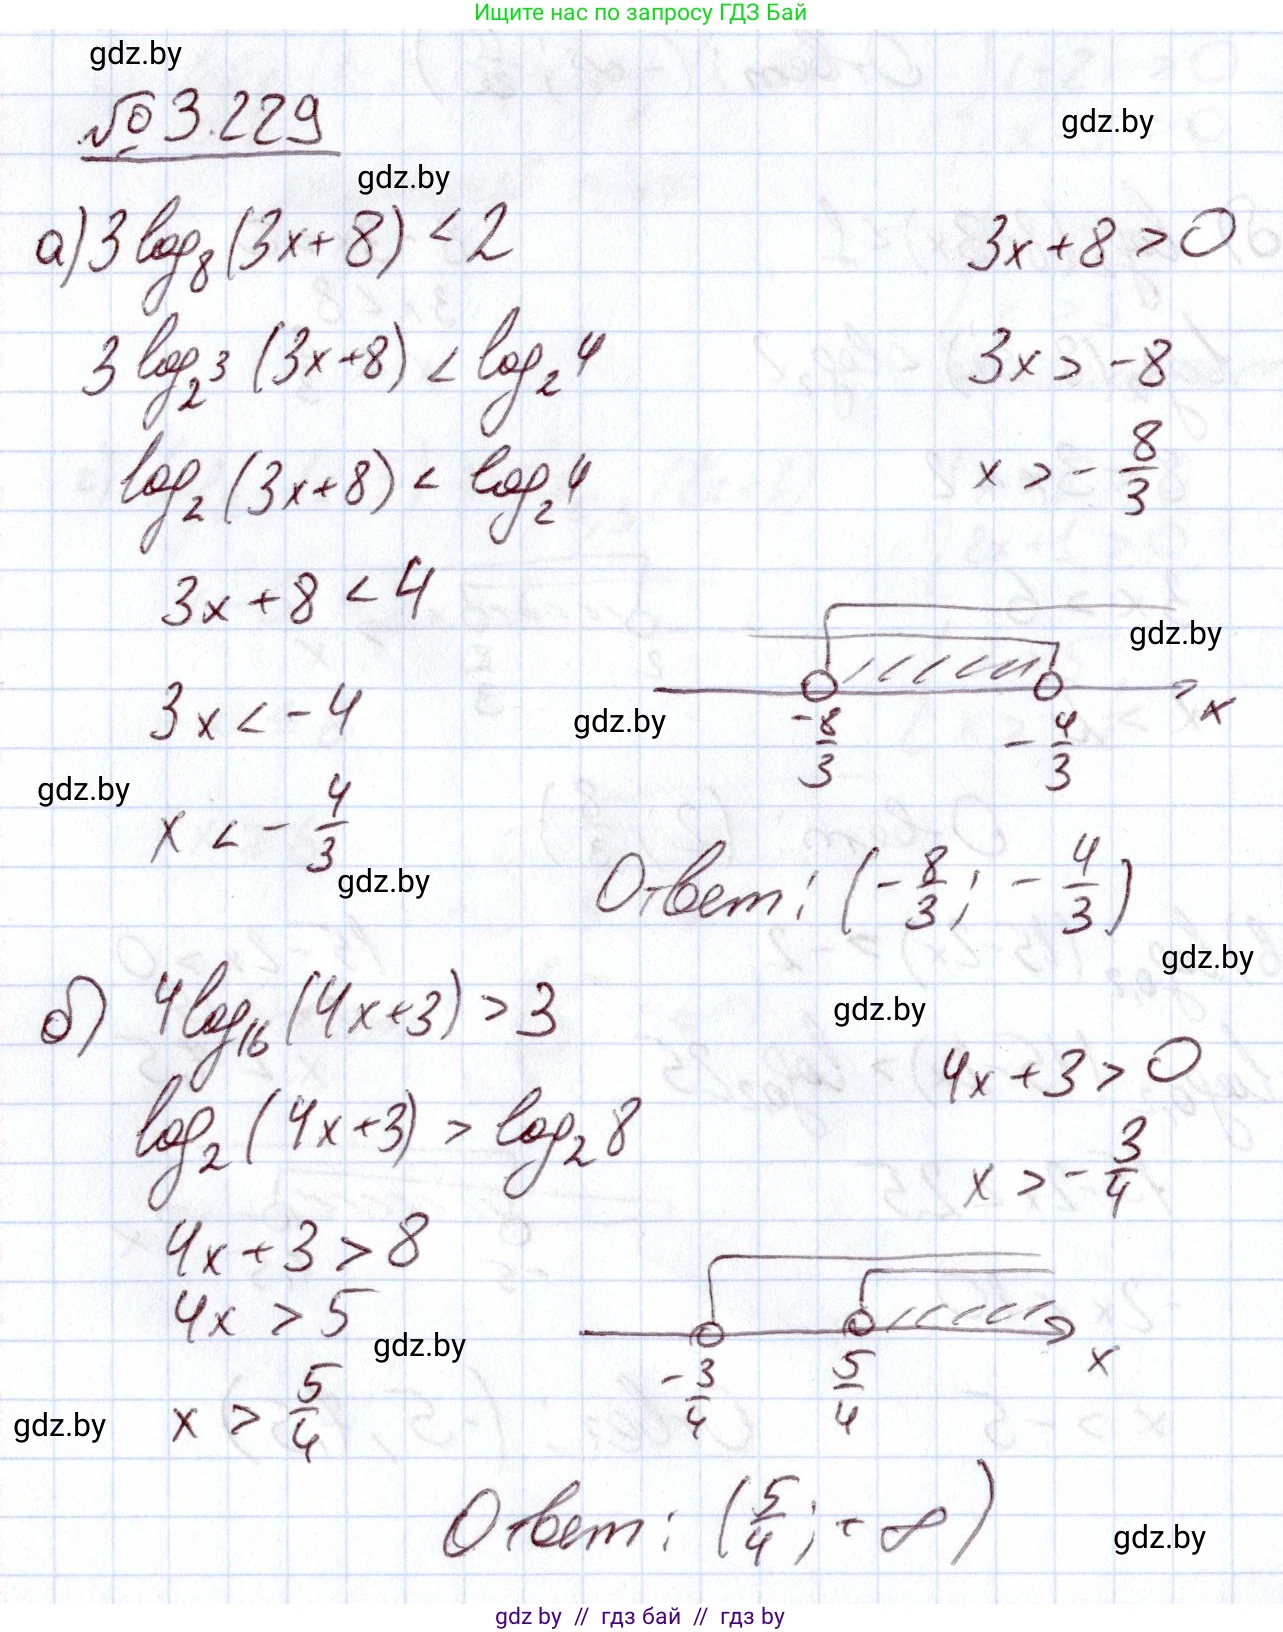 Ищите нас по запросу ГДЗ Бай
gdz.by
№ 3.229
gdz.by
gdz.by
а) 3 log₈ (3x+8) < 2
3x+8 > 0
3 log₂³ (3x+8) < log₂ 4
3x > -8
log₂ (3x+8) < log₂ 4
x > - 8/3
3x+8 < 4
gdz.by
3x < -4
gdz.by
-8/3 - 4/3 x
gdz.by
x < - 4/3
gdz.by
Ответ: (- 8/3; - 4/3)
gdz.by
б) 4 log₁₆ (4x+3) > 3
gdz.by
4x+3 > 0
log₂ (4x+3) > log₂ 8
x > - 3/4
4x+3 > 8
4x > 5
gdz.by
-3/4 5/4 x
x > 5/4
gdz.by
Ответ: (5/4; +∞)
gdz.by
gdz by // гдз бай // гдз by